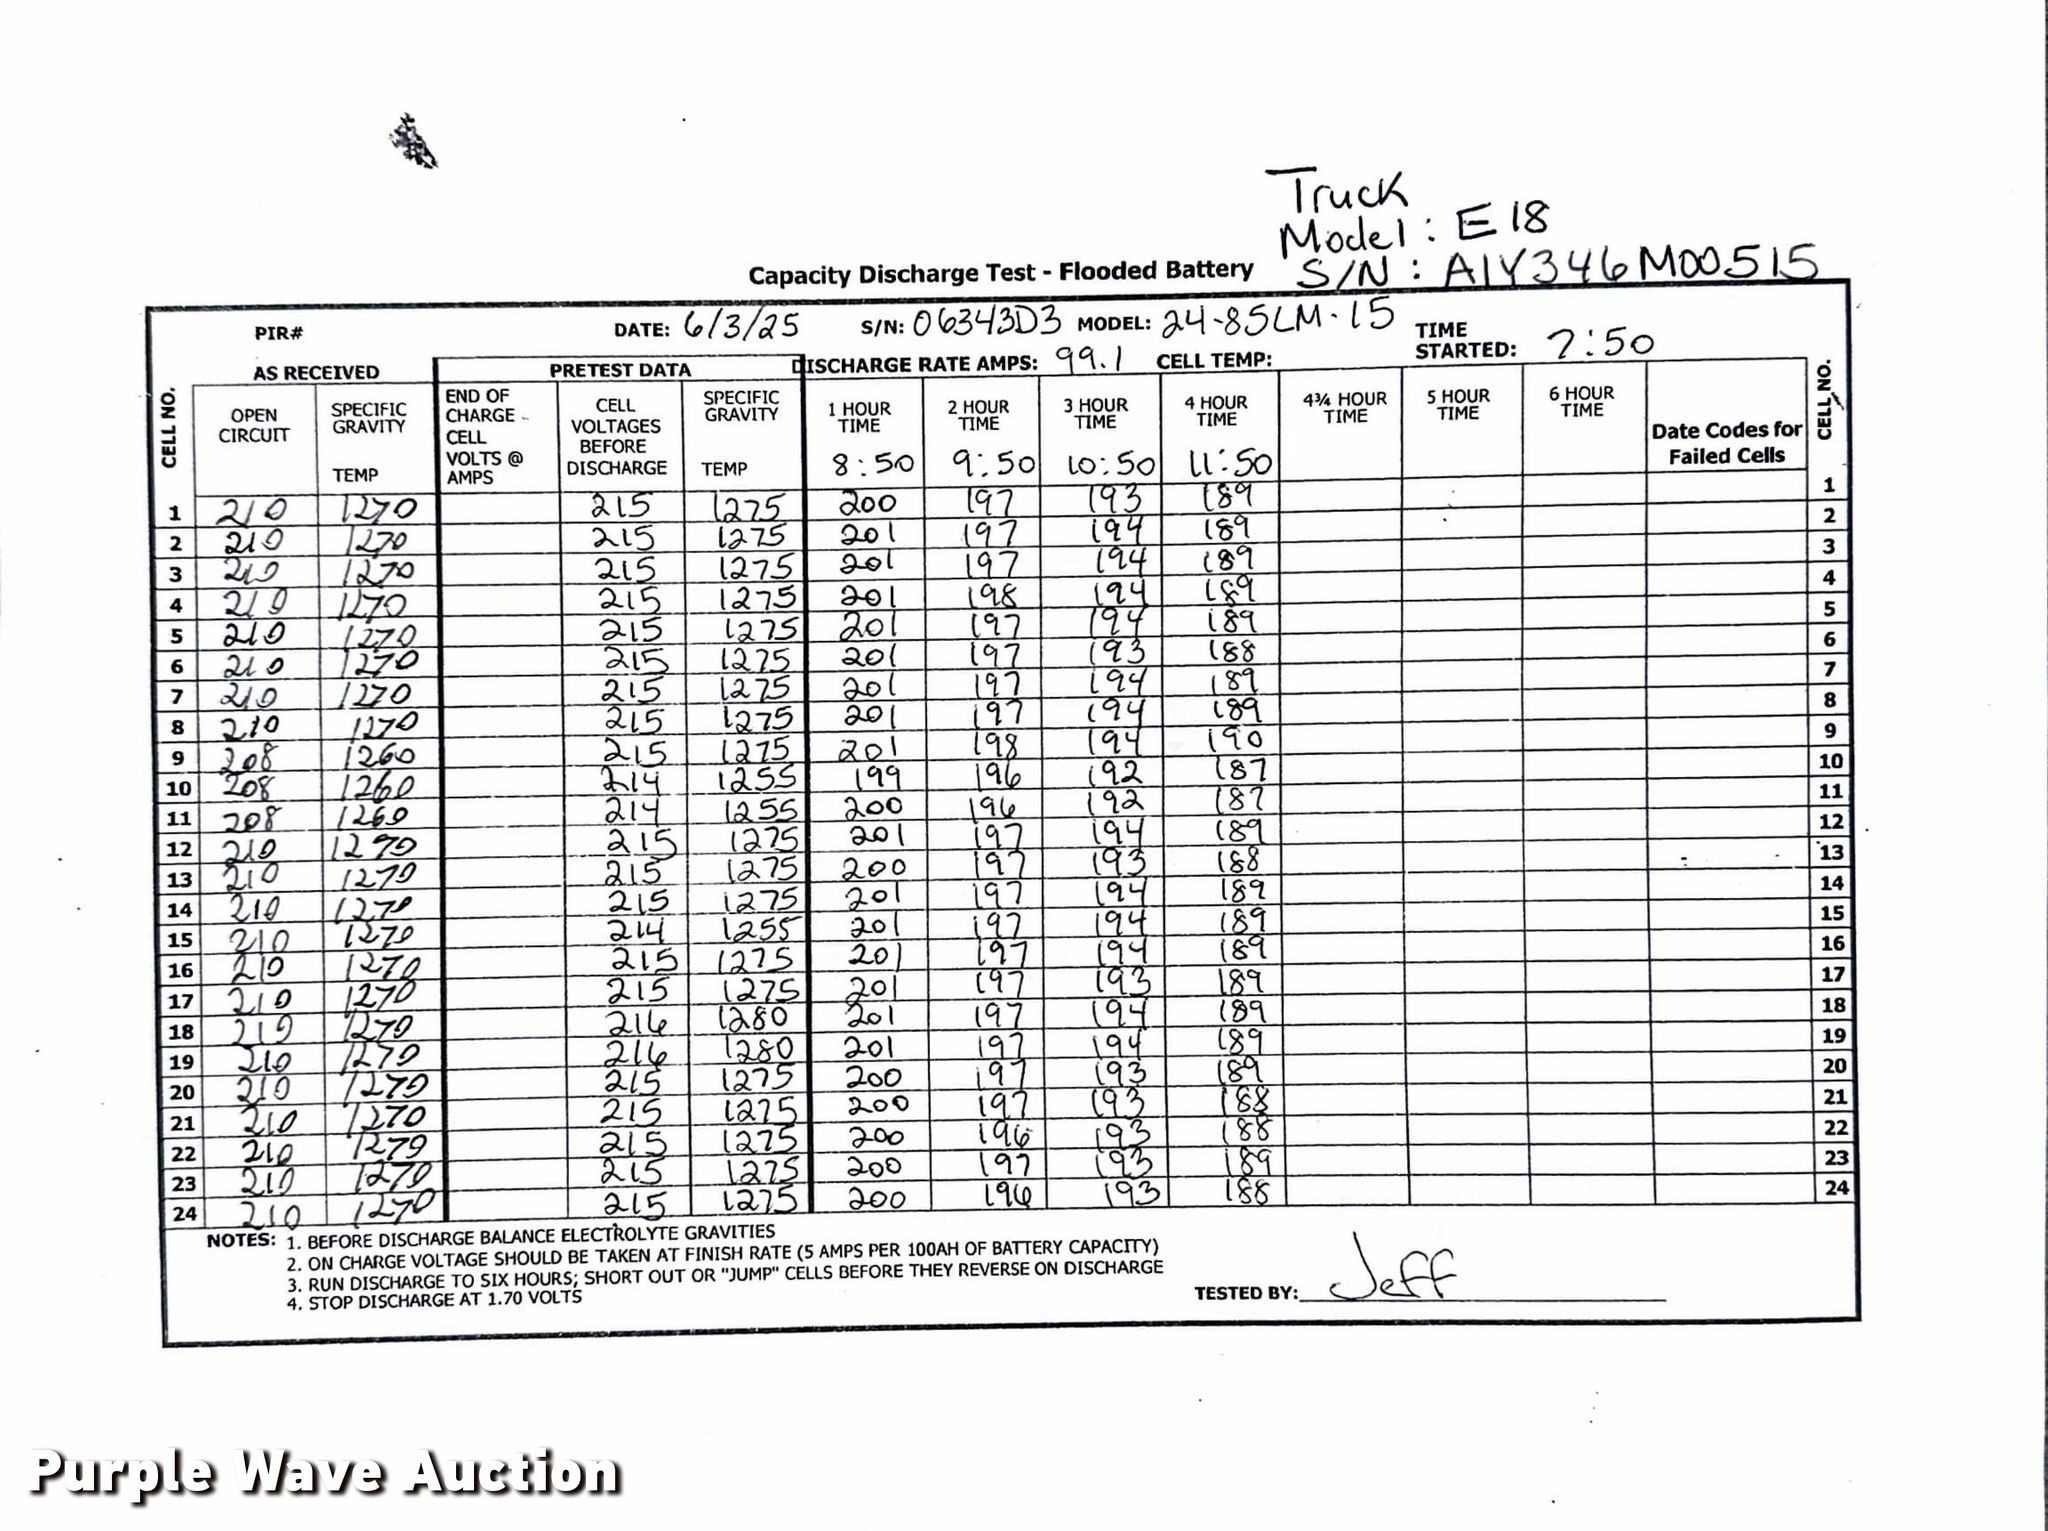 Truck
Model: E18
Capacity Discharge Test - Flooded Battery S/N: A1Y346M00515
PIR# DATE: 6/3/25 S/N: 06343D3 MODEL: 24-85LM-15 TIME STARTED: 7:50
AS RECEIVED PRETEST DATA DISCHARGE RATE AMPS: 99.1 CELL TEMP:
CELL NO. OPEN CIRCUIT SPECIFIC GRAVITY TEMP END OF CHARGE - CELL VOLTS @ AMPS CELL VOLTAGES BEFORE DISCHARGE SPECIFIC GRAVITY TEMP 1 HOUR TIME 8:50 2 HOUR TIME 9:50 3 HOUR TIME 10:50 4 HOUR TIME 11:50 4¾ HOUR TIME 5 HOUR TIME 6 HOUR TIME Date Codes for Failed Cells CELL NO.
1 210 1270 215 1275 200 197 193 189 1
2 210 1270 215 1275 201 197 194 189 2
3 210 1270 215 1275 201 197 194 189 3
4 210 1270 215 1275 201 198 194 189 4
5 210 1270 215 1275 201 197 194 189 5
6 210 1270 215 1275 201 197 193 188 6
7 210 1270 215 1275 201 197 194 189 7
8 210 1270 215 1275 201 197 194 189 8
9 208 1260 215 1275 201 198 194 190 9
10 208 1260 214 1255 199 196 192 187 10
11 208 1260 214 1255 200 196 192 187 11
12 210 1270 215 1275 201 197 194 189 12
13 210 1270 215 1275 200 197 193 188 13
14 210 1270 215 1275 201 197 194 189 14
15 210 1270 214 1255 201 197 194 189 15
16 210 1270 215 1275 201 197 194 189 16
17 210 1270 215 1275 201 197 193 189 17
18 210 1270 216 1280 201 197 194 189 18
19 210 1270 216 1280 201 197 194 189 19
20 210 1270 215 1275 200 197 193 189 20
21 210 1270 215 1275 200 197 193 188 21
22 210 1270 215 1275 200 196 193 188 22
23 210 1270 215 1275 200 197 193 189 23
24 210 1270 215 1275 200 196 193 188 24
NOTES: 1. BEFORE DISCHARGE BALANCE ELECTROLYTE GRAVITIES
2. ON CHARGE VOLTAGE SHOULD BE TAKEN AT FINISH RATE (5 AMPS PER 100AH OF BATTERY CAPACITY)
3. RUN DISCHARGE TO SIX HOURS; SHORT OUT OR "JUMP" CELLS BEFORE THEY REVERSE ON DISCHARGE
4. STOP DISCHARGE AT 1.70 VOLTS
TESTED BY: Jeff
Purple Wave Auction